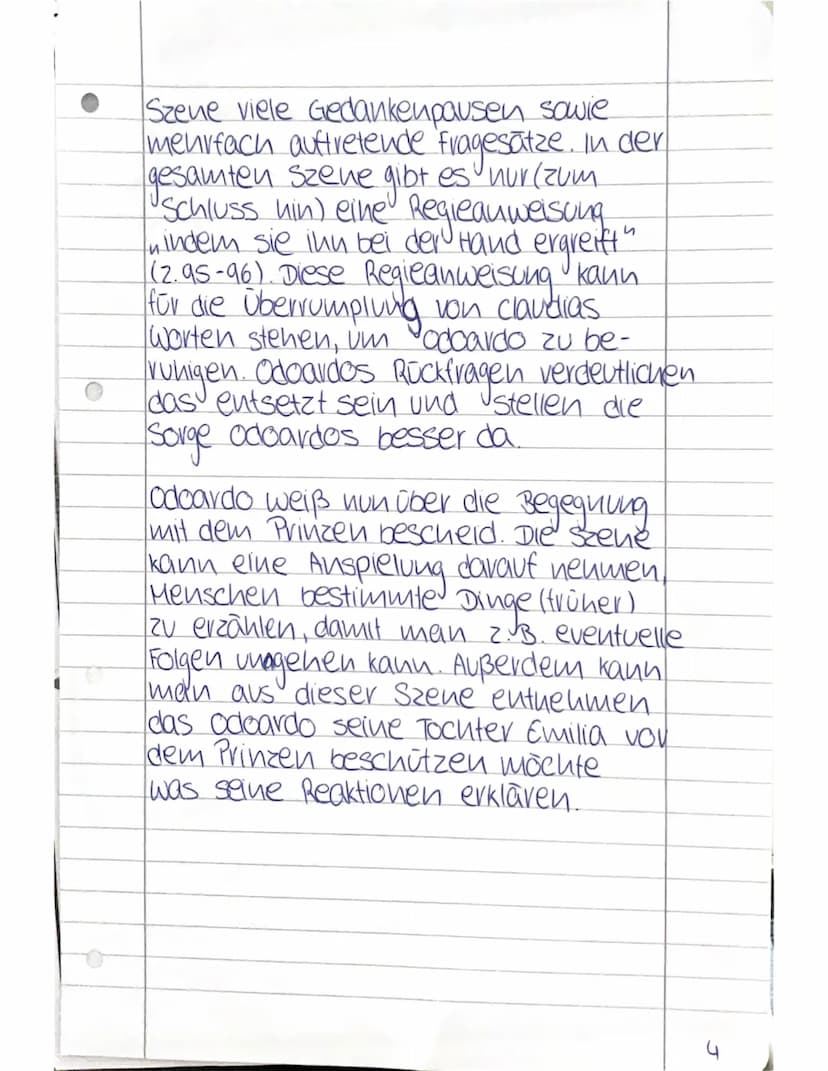 Szene viele Gedankenpausen sowie
mehrfach auftretende Fragesätze. In der
gesamten Szene gibt es nur (zum
Schluss hin) eine Regieanweisung
„indem sie ihn bei der Hand ergreift"
(Z.95-96). Diese Regieanweisung kann
für die Überrumplung von Claudias
Worten stehen, um Odoardo zu be-
ruhigen. Odoardos Rückfragen verdeutlichen
das entsetzt sein und stellen die
Sorge Odoardos besser da.
Odoardo weiß nun über die Begegnung
mit dem Prinzen bescheid. Die Szene
kann eine Anspielung darauf nehmen,
Menschen bestimmte Dinge (früher)
zu erzählen, damit man z.B. eventuelle
Folgen umgehen kann. Außerdem kann
man aus dieser Szene entnehmen
das Odoardo seine Tochter Emilia vor
dem Prinzen beschützen möchte
was seine Reaktionen erklären.
4